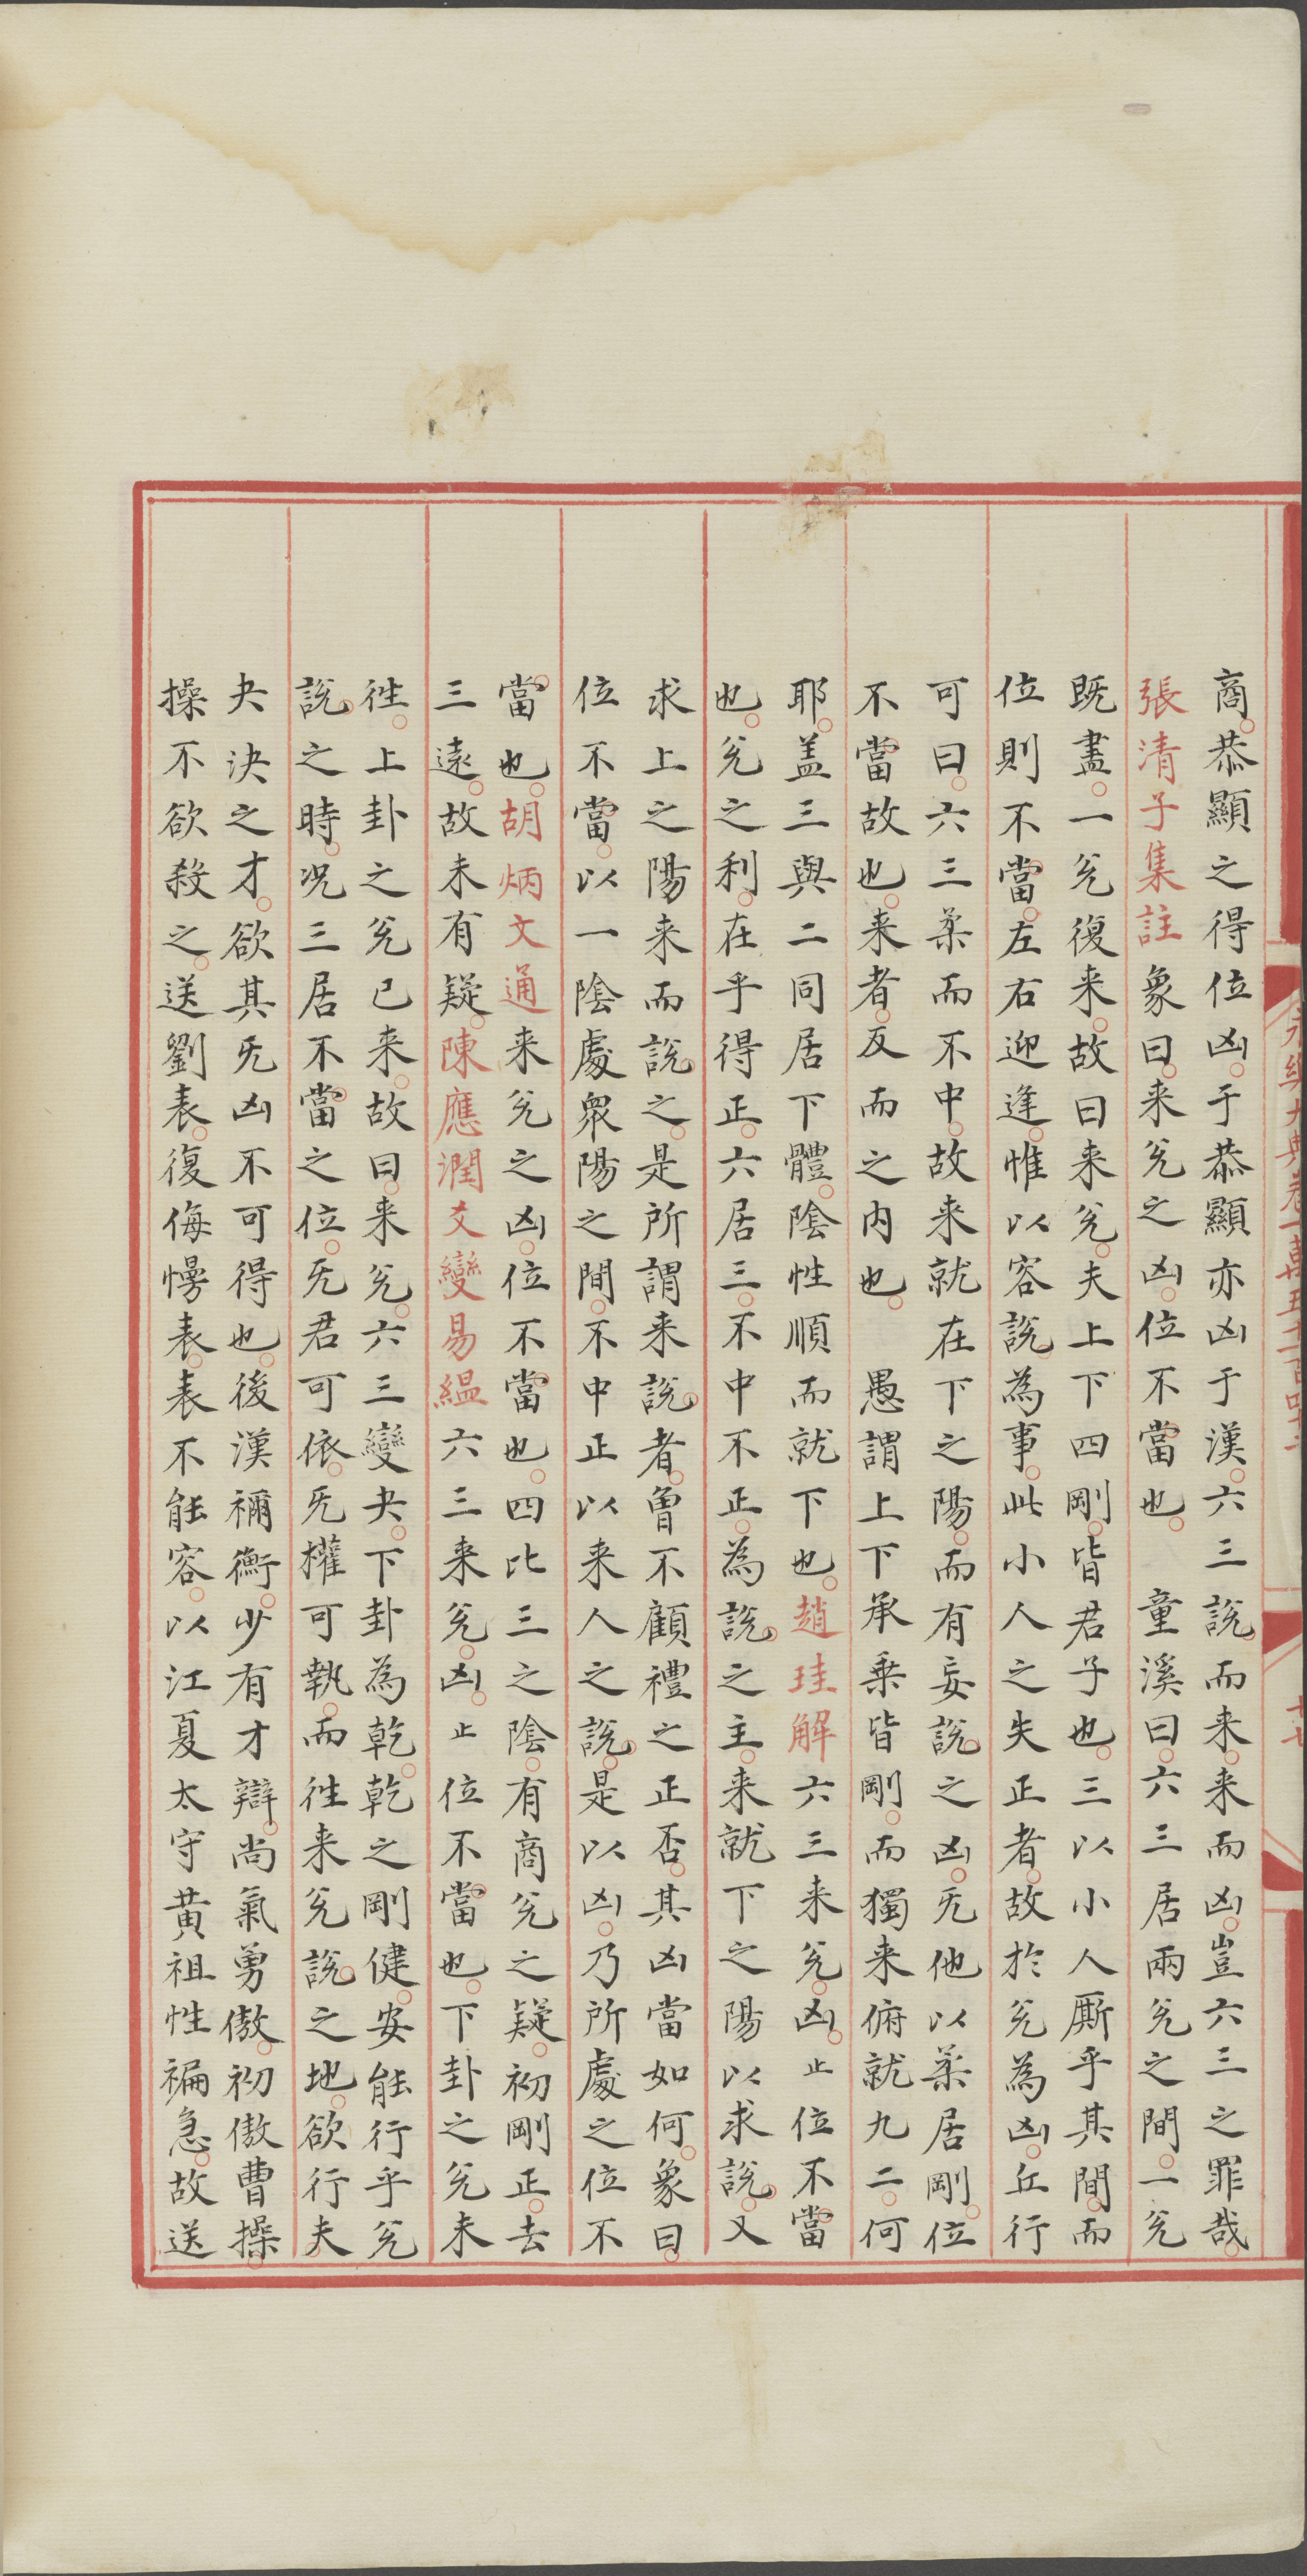 商恭顯之得位凶于恭顯亦凶于漢六三說而来来而凶豈六三之罪哉
張清子集註象曰来兊之凶位不當也　童溪曰六三居兩兊之間一兊
既盡一兊復来故曰来兊夫上下四剛皆君子也三以小人厮乎其間而
位則不當左右迎逢惟以容說為事此小人之失正者故於兊為凶丘行
可曰六三柔而不中故来就在下之陽而有妄說之凶旡他以柔居剛位
不當故也来者反而之内也　愚謂上下承乗皆剛而獨来俯就九二何
耶盖三與二同居下體陰性順而就下也趙珪解六三来兊凶止位不當
也兊之利在乎得正六居三不中不正為說之主来就下之陽以求說又
求上之陽来而說之是所謂来說者曾不顧禮之正否其凶當如何象曰
位不當以一陰處衆陽之間不中正以来人之說是以凶乃所處之位不
當也胡炳文通来兊之凶位不當也四比三之陰有商兊之疑初剛正去
三遠故未有疑陳應潤爻變易緼六三来兊凶止位不當也下卦之兊未
徃上卦之兊已来故曰来兊六三變夬下卦為乾乾之剛健安能行乎兊
說之時况三居不當之位旡君可依旡權可執而徃来兊說之地欲行夫
夬決之才欲其旡凶不可得也後漢禰衡少有才辯尚氣勇傲初傲曹操
操不欲殺之送劉表復侮慢表表不能容以江夏太守黄祖性褊急故送